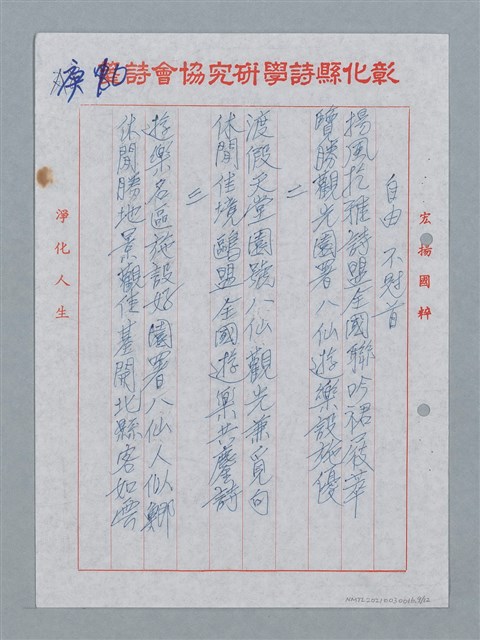 彰化縣詩學研究協會詩箋
宏揚國粹
淨化人生
自由 不對首
揚風扢雅詩盟全國聯吟裙屐萃
覽勝觀光園署八仙遊樂設施優
二
渡假天堂園號八仙觀光兼覓句
休閒佳境鷗盟全國遊樂共鏖詩
二
遊樂名區施設好園署八仙人似鄉
休閒勝地景觀佳基開北縣客如雲